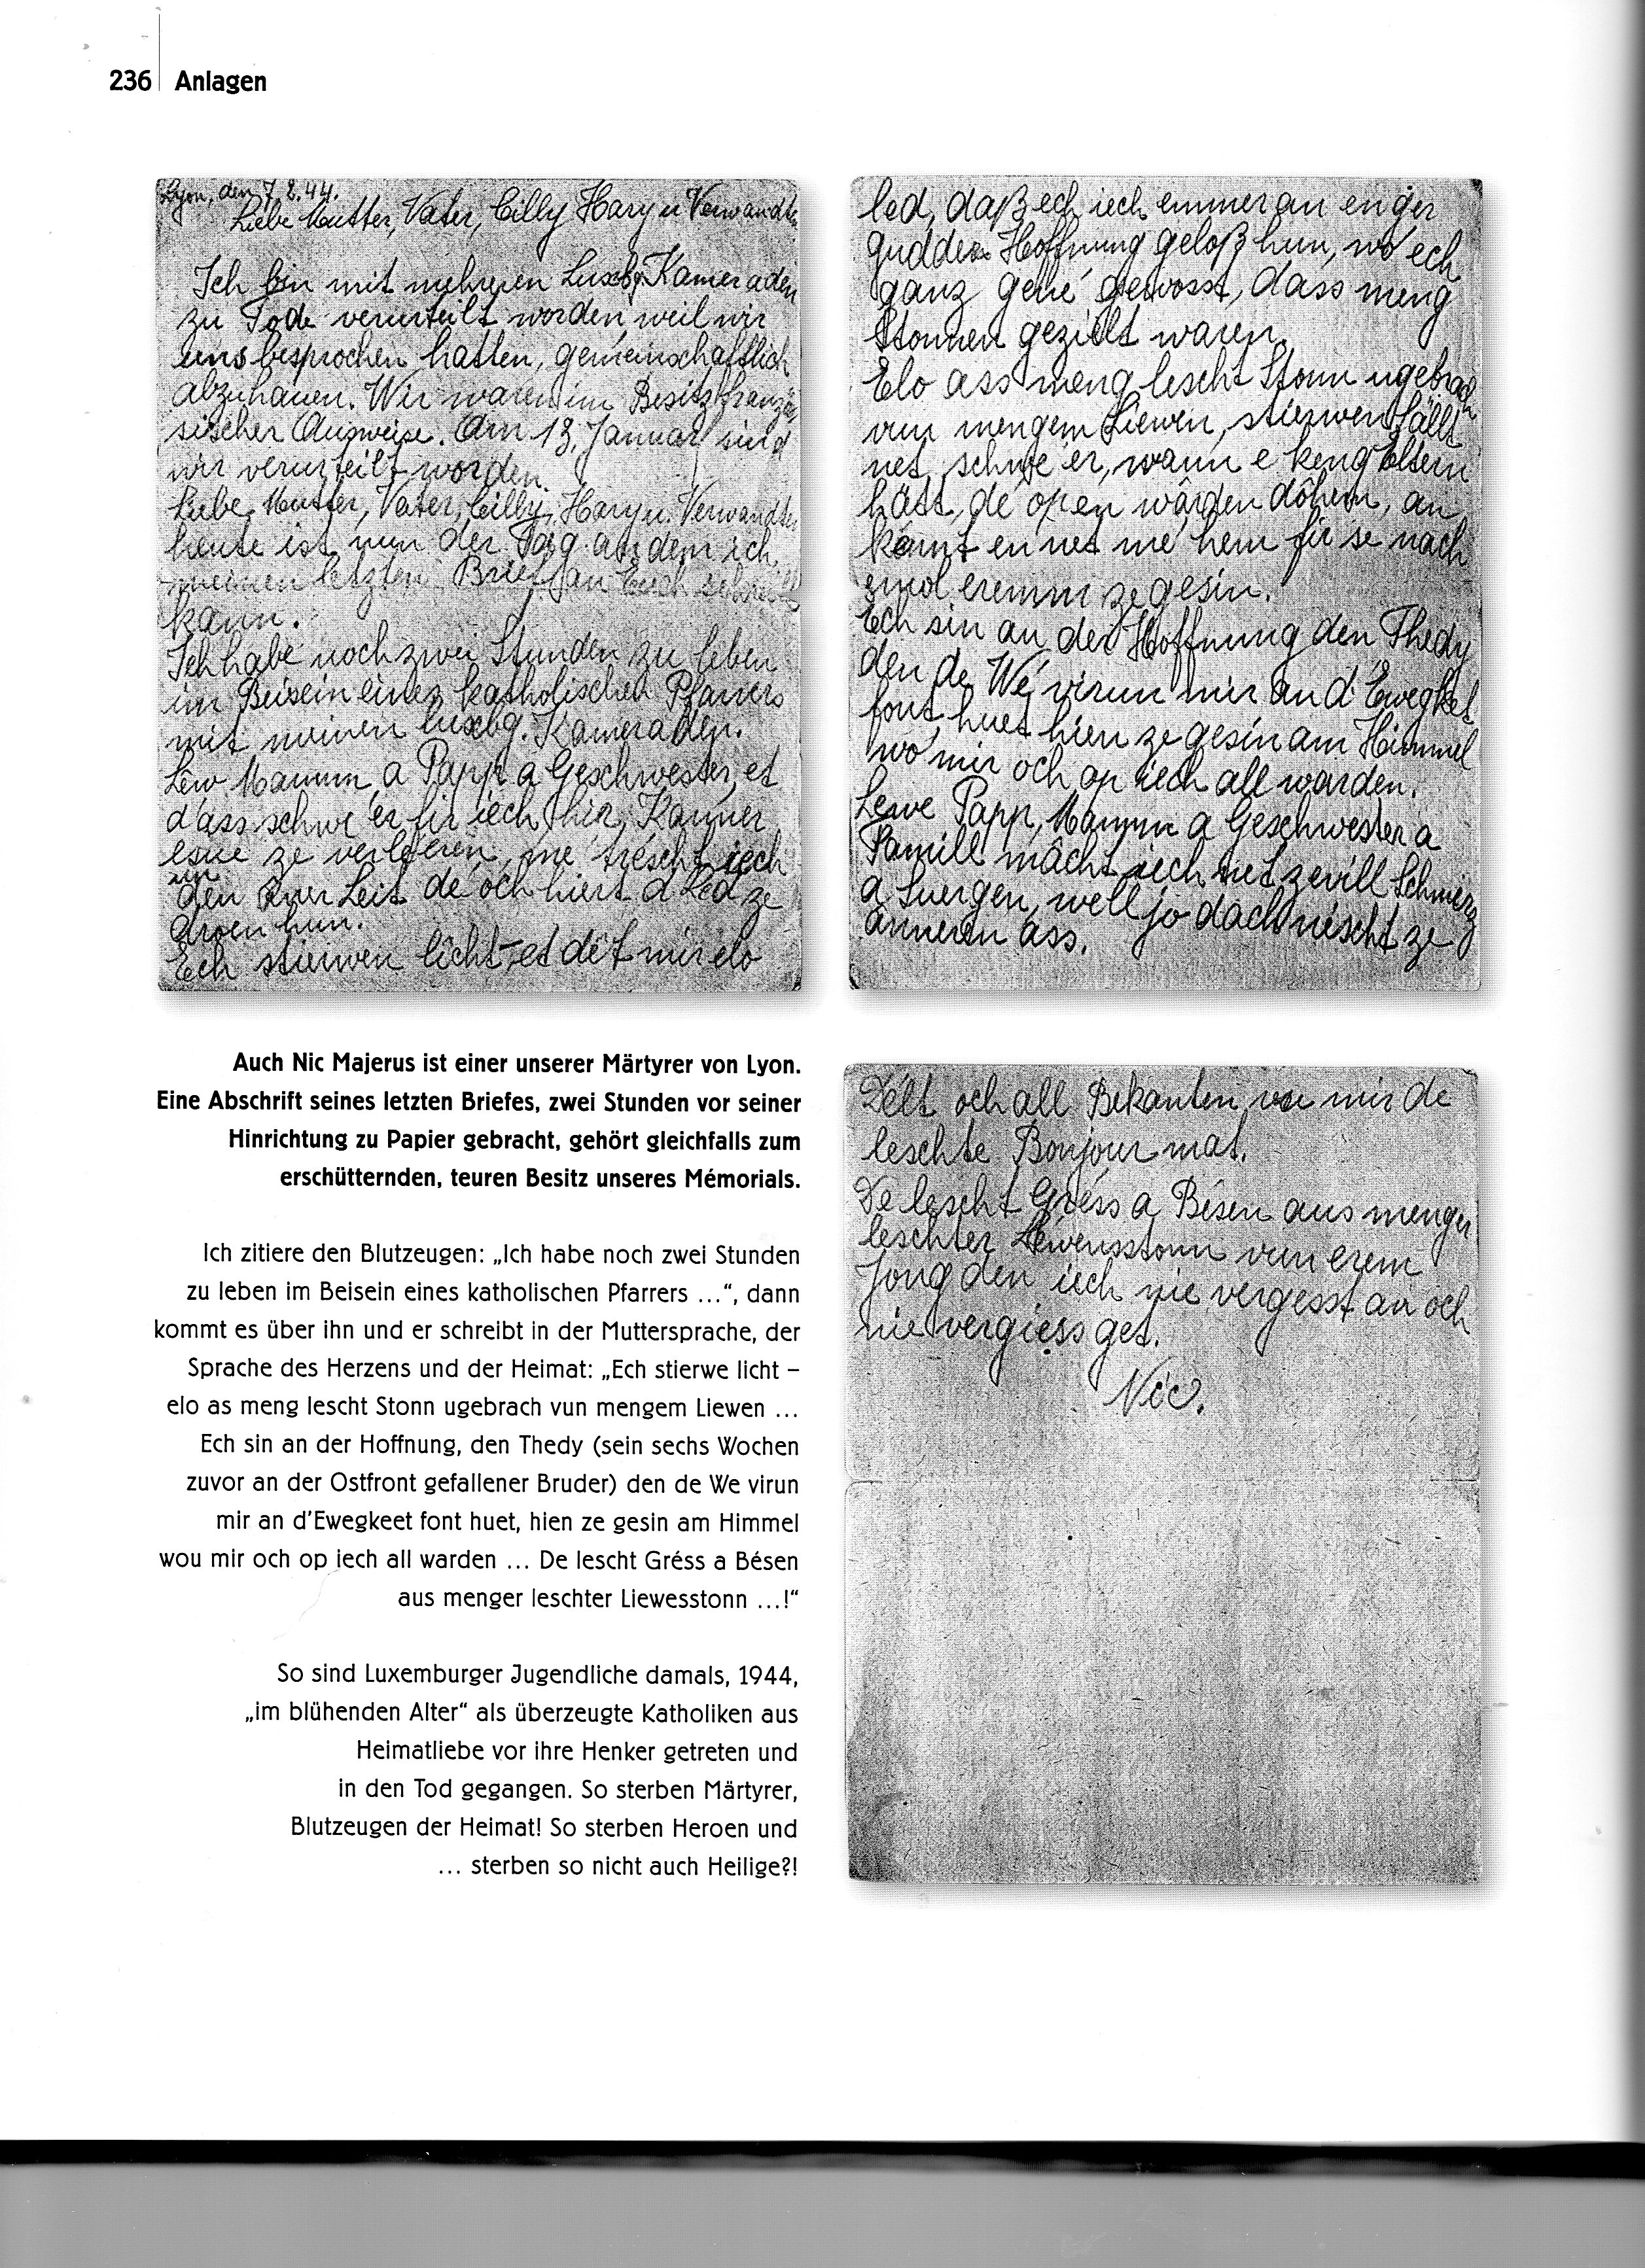 236 Anlagen
Lyon, den 7.2.44.
Liebe Mutter, Vater, Cilly Hary u Verwandte
Ich bin mit mehreren Luxbg. Kameraden
zu Tode verurteilt worden, weil wir
uns besprochen hatten, gemeinschaftlich
abzuhauen. Wir waren im Besitz französischer
Ausweise. Am 13. Januar sind
wir verurteilt worden.
Liebe Mutter, Vater, Cilly, Hary u. Verwandte
heute ist nun der Tag an dem ich
meinen letzten Brief an Euch schreiben
kann.
Ich habe noch zwei Stunden zu leben
im Beisein eines katholischen Pfarrers
mit meinen luxbg. Kameraden.
Lew Mamm a Papp a Geschwester, et
d'ass schwe'er fir iech hir Kanner
esue ze verléeren, me tréscht iech
un
den aner Leit de' och hiert d'Led ze
droen hun.
Ech stierwen licht, et dét mir elo
led, daß ech iech emmer an enger
gudder Hoffnung geloß hun, wo' ech
ganz gené gewosst, dass meng
Stonnen gezielt waren.
Elo ass meng lescht Stonn ugebrach
vun mengem Liewen, stierwen fällt
net schwe'er, wann e keng Eltern
hätt, de' open wärden dôhem, an
kännt en net mé hem fir se nach
emol eremm ze gesin.
Ech sin an der Hoffnung den Thedy
den de Wé virun mir an d'Ewegket
font huet hien ze gesin am Himmel
wo' mir och op iech all warden.
Lewe Papp, Mamm a Geschwester a
Famill mächt iech net ze vill Schmierz
a Suergen, well jo dach néscht ze
änneren ass.
Délt och all Bekanten vu mir de
leschte Bonjour mat.
De lescht Gréss a Bésen aus menger
leschter Liewensstonn vun erem
Jong den iech nie vergesst an och
nie vergiess get.
Nic.
Auch Nic Majerus ist einer unserer Märtyrer von Lyon.
Eine Abschrift seines letzten Briefes, zwei Stunden vor seiner
Hinrichtung zu Papier gebracht, gehört gleichfalls zum
erschütternden, teuren Besitz unseres Mémorials.
Ich zitiere den Blutzeugen: „Ich habe noch zwei Stunden
zu leben im Beisein eines katholischen Pfarrers ...“, dann
kommt es über ihn und er schreibt in der Muttersprache, der
Sprache des Herzens und der Heimat: „Ech stierwe licht –
elo as meng lescht Stonn ugebrach vun mengem Liewen ...
Ech sin an der Hoffnung, den Thedy (sein sechs Wochen
zuvor an der Ostfront gefallener Bruder) den de We virun
mir an d’Ewegkeet font huet, hien ze gesin am Himmel
wou mir och op iech all warden ... De lescht Gréss a Bésen
aus menger leschter Liewesstonn ...!“
So sind Luxemburger Jugendliche damals, 1944,
„im blühenden Alter“ als überzeugte Katholiken aus
Heimatliebe vor ihre Henker getreten und
in den Tod gegangen. So sterben Märtyrer,
Blutzeugen der Heimat! So sterben Heroen und
... sterben so nicht auch Heilige?!